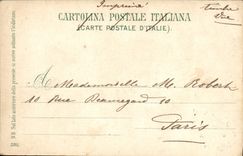 Imprimé
CARTOLINA POSTALE ITALIANA
(CARTE POSTALE D'ITALIE)
A Mademoiselle M. Robert
10 Rue Beauregard 10
Paris
NB. Sul lato anteriore della presente si scrive soltanto l'indirizzo.